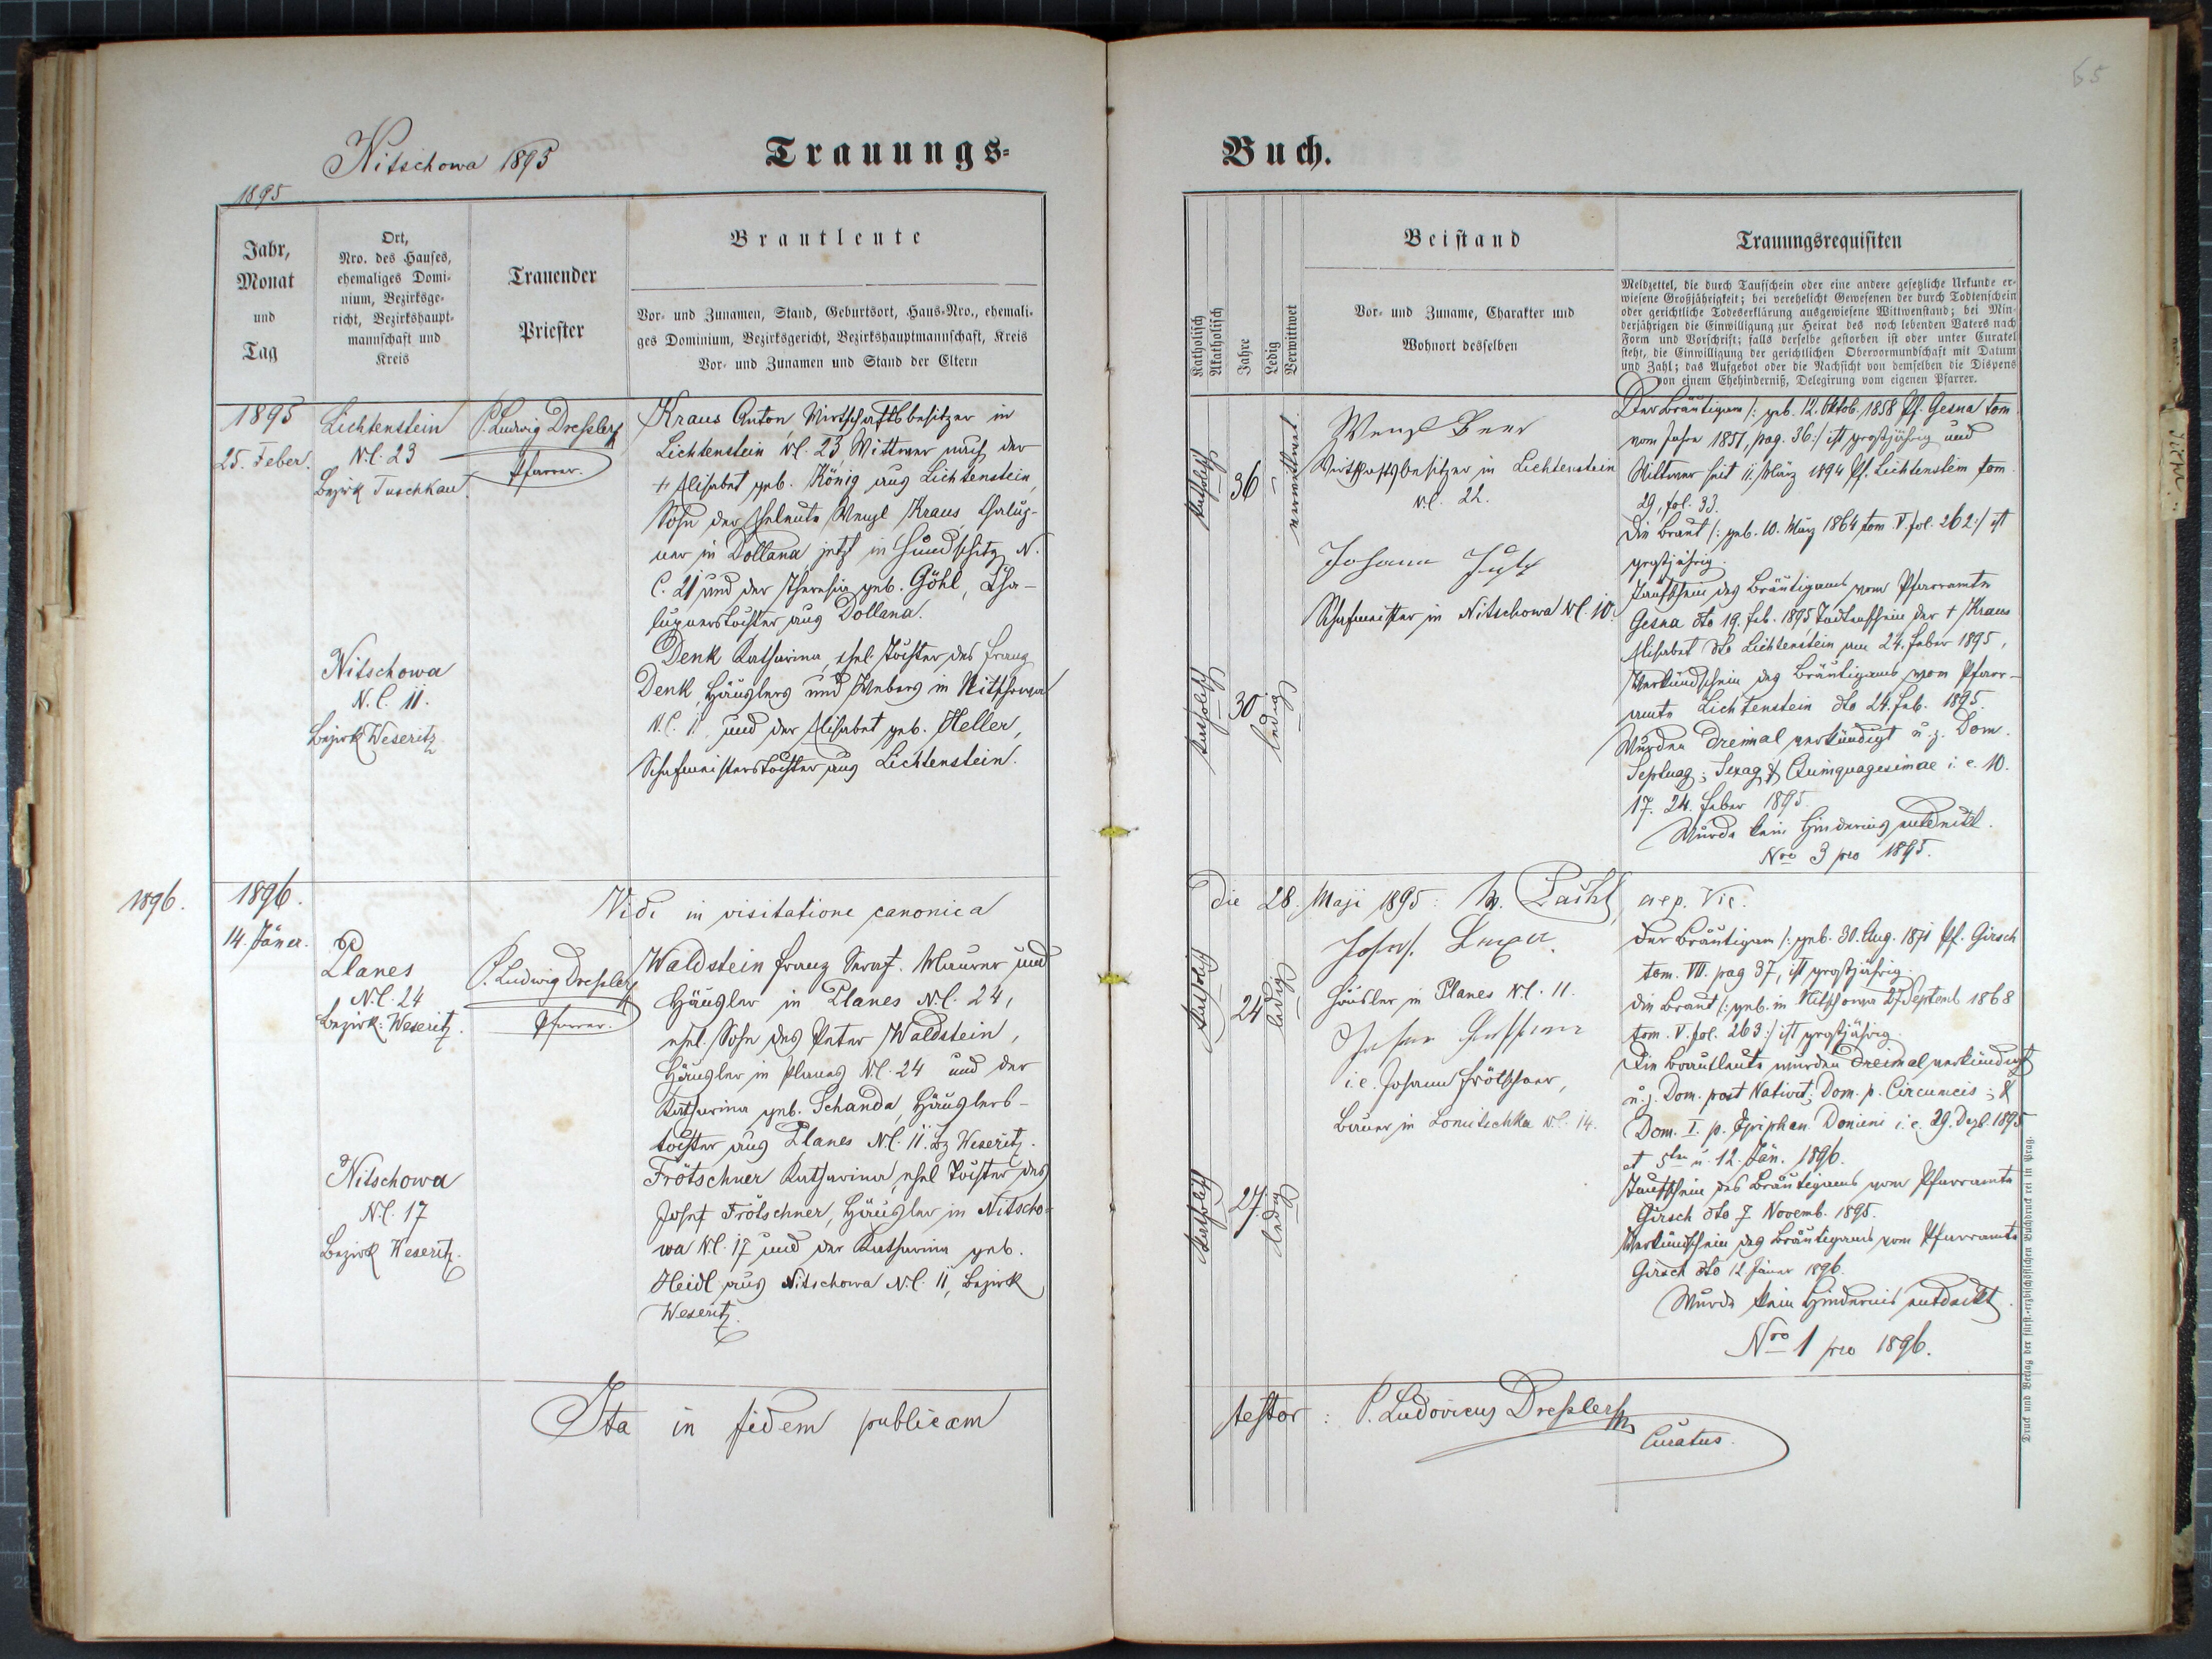 65
Nitschowa 1895
Trauungs-
Buch.
1895
Jahr,
Monat
und
Tag
Ort,
Nro. des Hauses,
ehemaliges Domi-
nium, Bezirksge-
richt, Bezirkshaupt-
mannschaft und
Kreis
Trauender
Priester
Brautleute
Vor- und Zunamen, Stand, Geburtsort, Haus-Nro., ehemali-
ges Dominium, Bezirksgericht, Bezirkshauptmannschaft, Kreis
Vor- und Zunamen und Stand der Eltern
Katholisch
Akatholisch
Jahre
Ledig
Verwittwet
Beistand
Vor- und Zuname, Charakter und
Wohnort desselben
Trauungsrequisiten
Meldzettel, die durch Taufschein oder eine andere gesetzliche Urkunde er-
wiesene Großjährigkeit; bei verehelicht Gewesenen der durch Todtenschein
oder gerichtliche Todeserklärung ausgewiesene Wittwenstand; bei Min-
derjährigen die Einwilligung zur Heirat des noch lebenden Vaters nach
Form und Vorschrift; falls derselbe gestorben ist oder unter Curatel
steht, die Einwilligung der gerichtlichen Obervormundschaft mit Datum
und Zahl; das Aufgebot oder die Nachsicht von demselben die Dispens
von einem Ehehinderniß, Delegirung vom eigenen Pfarrer.
1895
25. Feber.
Lichtenstein
N.C. 23
Bezirk Tuschkau.
P. Ludwig Dressler
Pfarrer.
Kraus Anton Wirtschaftsbesitzer in
Lichtenstein N.C. 23 Wittwer nach der
+ Elisabet geb. König aus Lichtenstein,
Sohn der Eheleute Wenzl Kraus, Chalup-
ner in Dollana jetzt in Hundschitz N.
C. 21 und der Theresia geb. Göhl, Cha-
lupnerstochter aus Dollana.
Nitschowa
N.C. 11.
Bezirk Weseritz
Denk Katharina, ehel. Tochter des Franz
Denk, Häuslers und Webers in Nitschowa
N.C. 11. und der Elisabet geb. Heller,
Schafmeisterstochter aus Lichtenstein.
katholisch
36
verwittwet
katholisch
30
ledig
Wenzl Beer
Wirtschaftsbesitzer in Lichtenstein
N.C. 22.
Johann
Schafmeister in Nitschowa N.C. 10.
Der Bräutigam /: geb. 12. Oktob. 1858 Pf. Gesna tom.
vom Jahre 1851, pag. 36 :/ ist großjährig und
Wittwer seit 11. März 1894 Pf. Lichtenstein tom.
29, fol. 33.
Die Braut /: geb. 10. März 1864 tom. V. fol. 262 :/ ist
großjährig.
Taufschein des Bräutigams vom Pfarramte
Gesna dto 19. Feb. 1895 Todtenschein der + Kraus
Elisabet dto Lichtenstein am 24. Feber 1895,
Verkündschein des Bräutigams vom Pfarr-
amte Lichtenstein dto 24. Feb. 1895.
Wurden dreimal verkündigt u. z. Dom.
Septuag; Sexag & Quinquagesimae i. e. 10.
17. 24. Feber 1895.
Wurde kein Hinderniss entdeckt.
Nro 3 pro 1895.
Vidi in visitatione canonica
Die 28. Maji 1895: aep. Vic.
1896.
1896.
14. Jäner.
Planes
N.C. 24
Bezirk: Weseritz.
P. Ludwig Dressler
Pfarrer.
Waldstein Franz Seraf. Maurer und
Häusler in Planes N.C. 24,
ehel. Sohn des Peter Waldstein,
Häusler in Planes N.C. 24 und der
Katharina geb. Schanda, Häuslers-
tochter aus Planes N.C. 11. Bz Weseritz.
Nitschowa
N.C. 17
Bezirk Weseritz.
Frötschner Katharina, ehel Tochter des
Josef Frötschner, Häusler in Nitscho-
wa N.C. 17 und der Katharina geb.
Heidl aus Nitschowa N.C. 11, Bezirk
Weseritz.
katholisch
24
ledig
katholisch
27.
ledig
Häusler in Planes N.C. 11.
i.e. Johann Frötschner,
Bauer in Lomitschka N.C. 14.
Der Bräutigam /: geb. 30. Aug. 1871 Pf. Girsch
tom. VII. pag 37, ist großjährig.
Die Braut /: geb. in Nitschowa 27 Septemb 1868
tom. V. fol. 263 :/ ist großjährig.
Die Brautleute wurden dreimal verkündigt
u. z. Dom. post Nativit; Dom. p. Circumcis; &
Dom. I. p. Epiphan. Domini i. e. 29. Dezb. 1895
et 5ten u. 12. Jän. 1896.
Taufschein des Bräutigams vom Pfarramte
Girsch dto 7. Novemb. 1895.
Verkündschein des Bräutigams vom Pfarramte
Girsch dto 12 Jäner 1896.
Wurde kein Hindernis entdeckt.
Nro 1 pro 1896.
Ita in fidem publicam
testor: P. Ludovicus Dressler
Curatus.
Druck und Verlag der fürst.-erzbischöflichen Buchdruckerei in Prag.